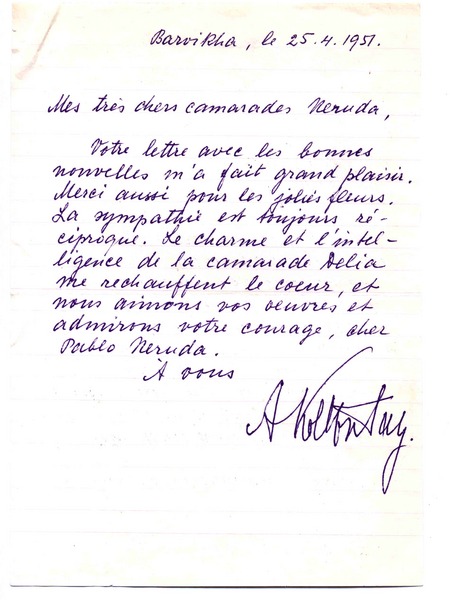 Barvikha, le 25.4.1951.
Mes très chers camarades Neruda,
Votre lettre avec les bonnes
nouvelles m'a fait grand plaisir.
Merci aussi pour les jolies fleurs.
La sympathie est toujours ré-
ciproque. Le charme et l'intel-
ligence de la camarade Delia
me rechauffent le coeur, et
nous aimons vos oeuvres et
admirons votre courage, cher
Pablo Neruda.
À vous
A Kollontay.